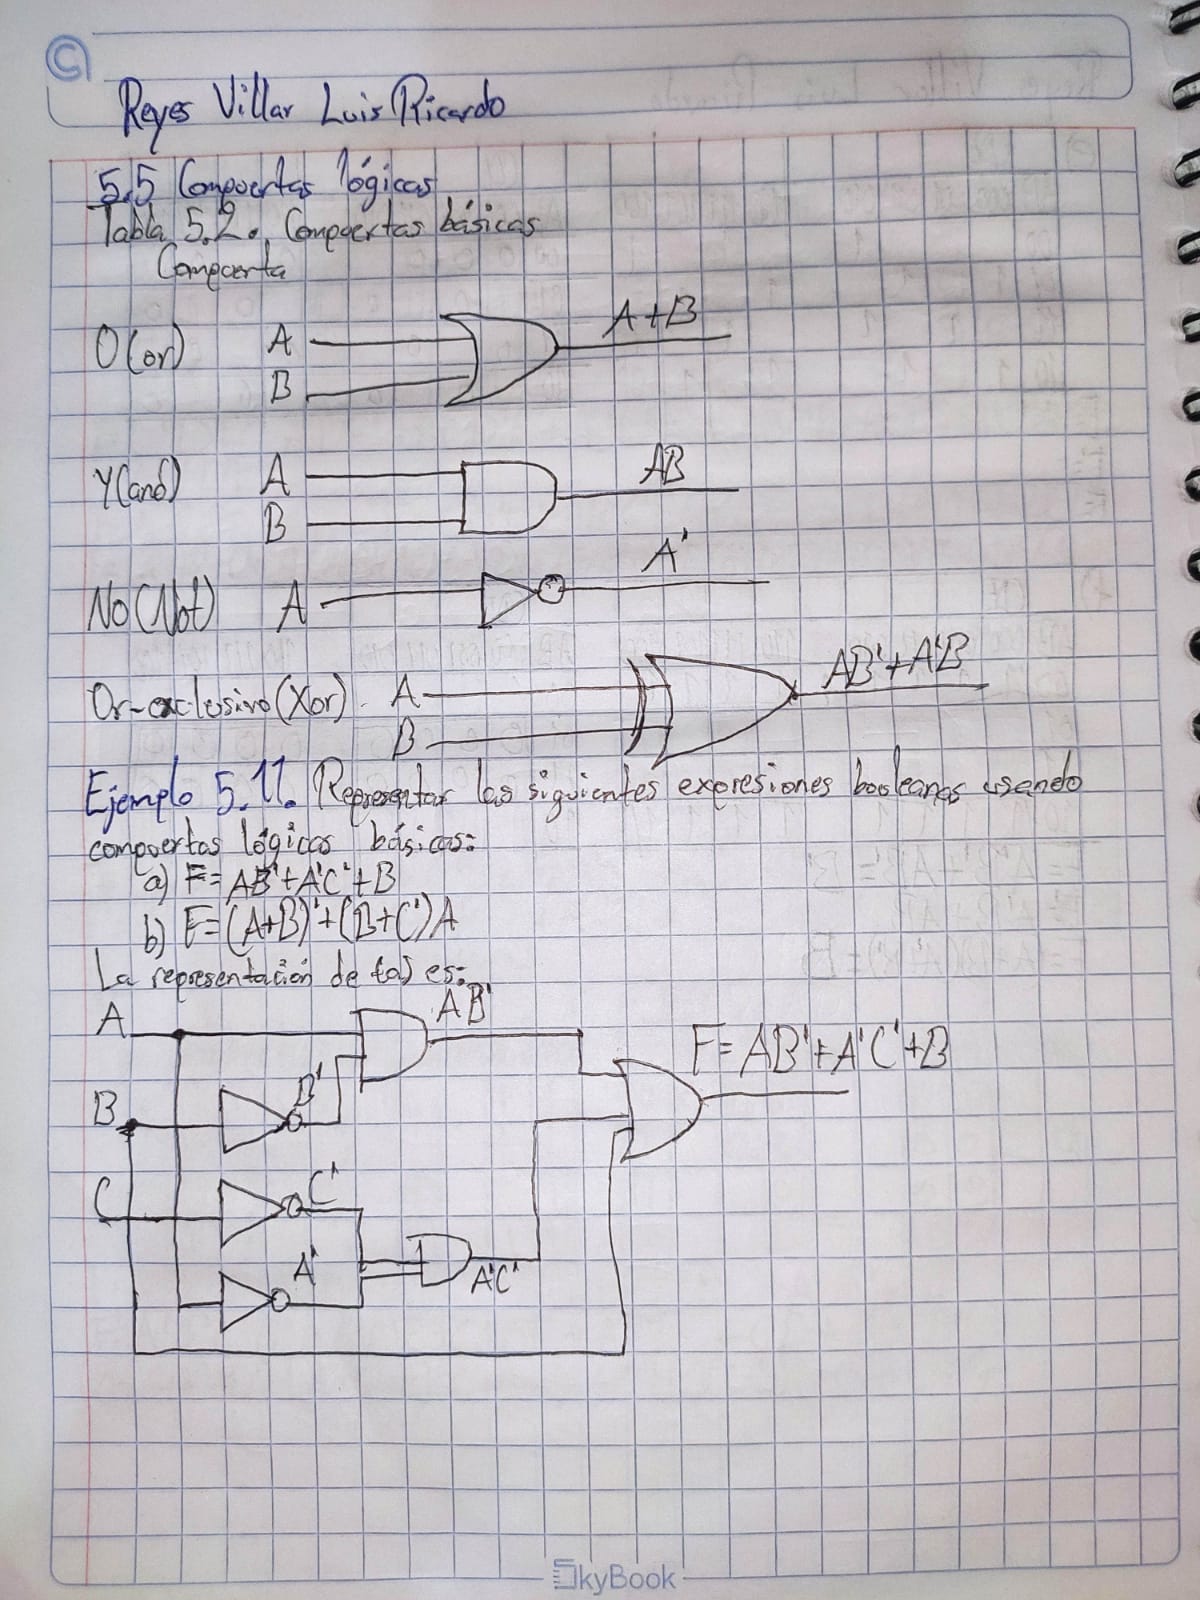 Reyes Villar Luis Ricardo
5.5 Compuertas lógicas
Tabla 5.2. Compuertas básicas
Compuerta
O(or) A B A+B
Y(and) A B AB
No(Not) A A'
Or-exclusivo(Xor) A B AB'+A'B
Ejemplo 5.11. Representar las siguientes expresiones booleanas usando
compuertas lógicas básicas:
a) F= AB'+A'C'+B
b) F=(A+B)'+(B+C')A
La representación de (a) es:
A AB'
F= AB'+A'C'+B
B B'
C C'
A' A'C'
SkyBook